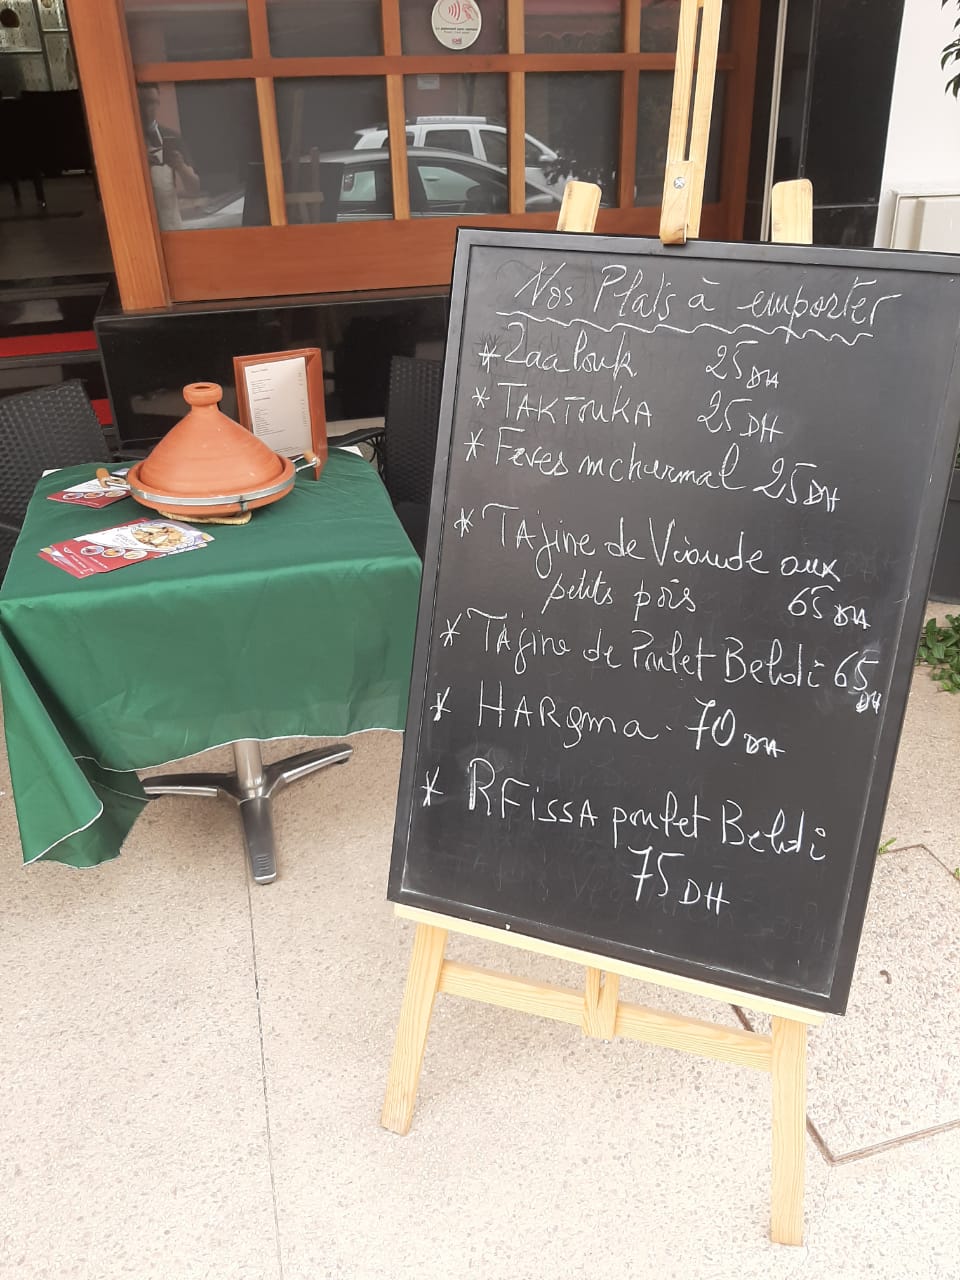 Nos Plats à emporter
* Zaalouk 25 DH
* TAKTOUKA 25 DH
* Feves mchermal 25 DH
* TAjine de Viande aux
petits pois 65 DH
* TAjine de Poulet Beldi 65
DH
* HARgma. 70 DH
* RFissA poulet Beldi
75 DH